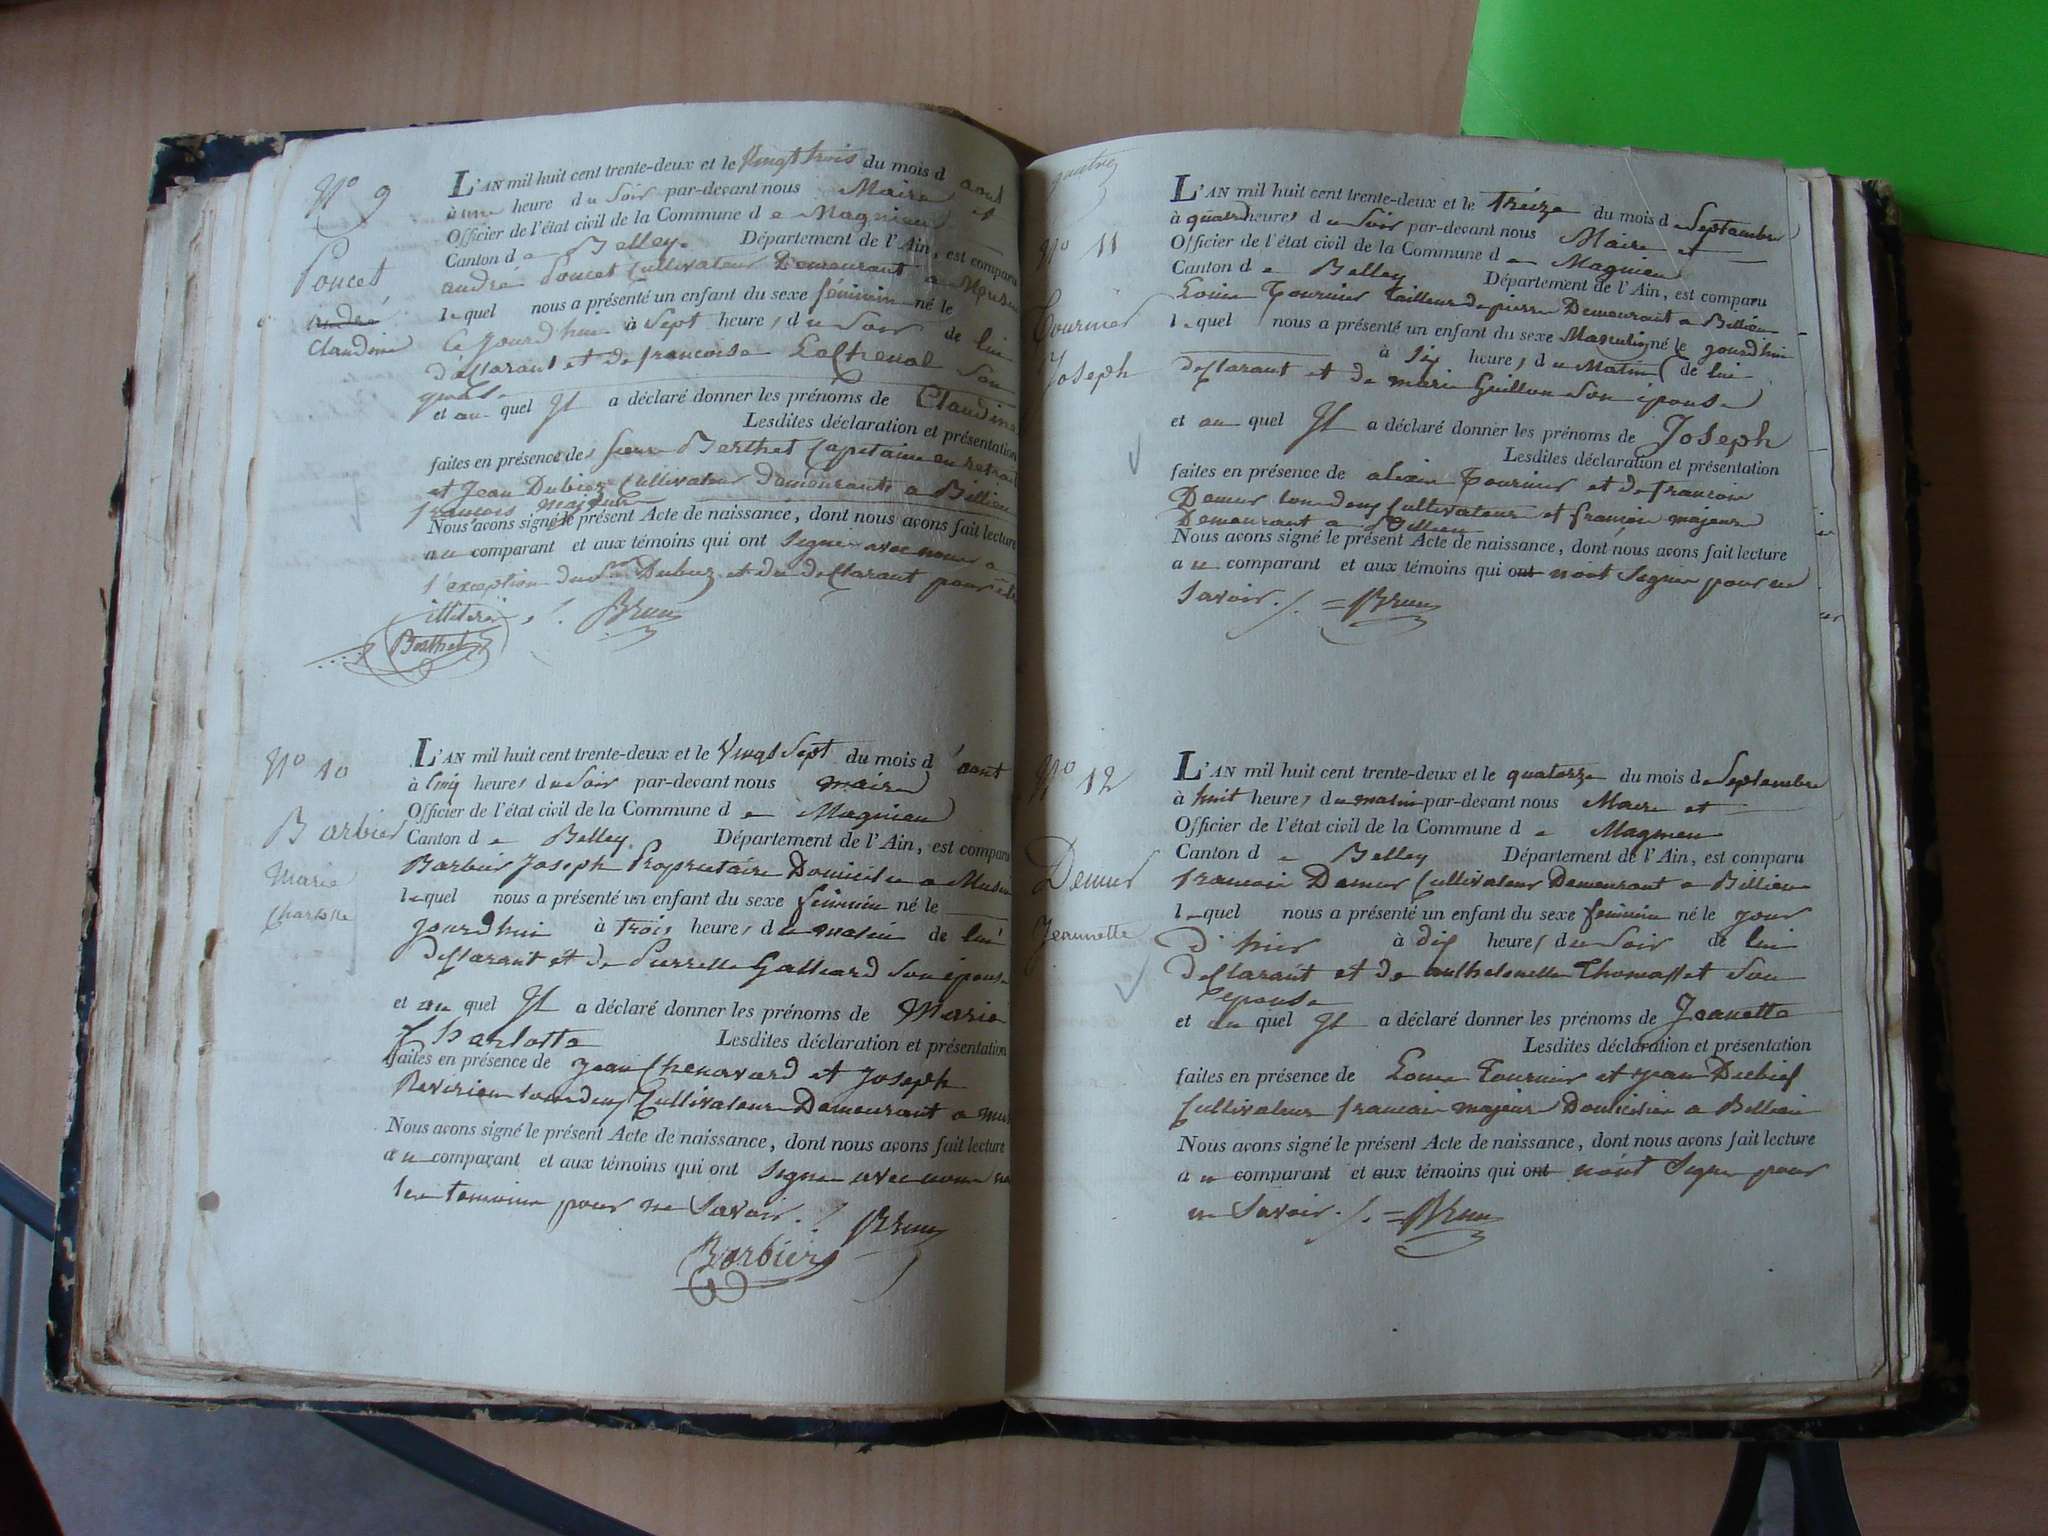 Nº 9
Poucet
andré
Claudine
L'AN mil huit cent trente-deux et le Vingt trois du mois d aout
à une heure du Soir par-devant nous Maire et
Officier de l'état civil de la Commune d e Magnieu
Canton d e Belley. Département de l'Ain, est comparu
andré Poucet Cultivateur Demeurant a
lequel nous a présenté un enfant du sexe féminin né le
Ce jourd'hui à Sept heures du Soir de lui
déclarant et de francoise Son
et au quel Il a déclaré donner les prénoms de Claudine
Lesdites déclaration et présentation
faites en présence de Sieur Berthet Capitaine en retrait
et Jean Dubiez Cultivateur demeurants a Billieu
francois majeur
Nous avons signé le présent Acte de naissance, dont nous avons fait lecture
au comparant et aux témoins qui ont Signé avec nous a
l'exception du Sr Dubiez et du déclarant pour
illitéré ./. Brun
Berthet
Nº 10
Barbier
Marie
Charlotte
L'AN mil huit cent trente-deux et le Vingt Sept du mois d'aout
à Cinq heures du Soir par-devant nous maire
Officier de l'état civil de la Commune d e Magnieu
Canton d e Belley. Département de l'Ain, est comparu
Barbier Joseph Proprietaire Domicilié a Musin
lequel nous a présenté un enfant du sexe féminin né le
jourd'hui à trois heures du matin de lui
déclarant et de Pierrette Galliard Son épouse
et au quel Il a déclaré donner les prénoms de Marie
Charlotte Lesdites déclaration et présentation
faites en présence de Jean Chenavard et Joseph
Reverien tous deux Cultivateurs Demeurant a
Nous avons signé le présent Acte de naissance, dont nous avons fait lecture
au comparant et aux témoins qui ont Signé avec nous
les temoins pour ne Savoir ./. Brun
Barbier
Nº 11
Tournier
Joseph
L'AN mil huit cent trente-deux et le Treize du mois de Septembre
à quatre heures du Soir par-devant nous Maire et
Officier de l'état civil de la Commune d e Magnieu
Canton d e Belley Département de l'Ain, est comparu
Louis Tournier tailleur de pierre Demeurant a Billieu
lequel nous a présenté un enfant du sexe Masculin né le jourd'hui
à Six heures du Matin de lui
déclarant et de marie Guillon Son épouse
et au quel Il a déclaré donner les prénoms de Joseph
Lesdites déclaration et présentation
faites en présence de alexis Tournier et de francois
Demur tous deux Cultivateurs et français majeurs
Demeurant a Billieu
Nous avons signé le présent Acte de naissance, dont nous avons fait lecture
au comparant et aux témoins qui ont n'ont Signé pour ne
Savoir ./. = Brun
Nº 12
Demur
Jeannette
L'AN mil huit cent trente-deux et le quatorze du mois de Septembre
à huit heures du matin par-devant nous Maire et
Officier de l'état civil de la Commune d e Magnieu
Canton d e Belley Département de l'Ain, est comparu
francois Demur Cultivateur Demeurant a Billieu
lequel nous a présenté un enfant du sexe féminin né le jour
d'hier à dix heures du Soir de lui
déclarant et de Thomasset Son
épouse
et au quel Il a déclaré donner les prénoms de Jeanette
Lesdites déclaration et présentation
faites en présence de Louis Tournier et jean Dubiez
Cultivateurs francais majeurs Domiciliés a Billieu
Nous avons signé le présent Acte de naissance, dont nous avons fait lecture
au comparant et aux témoins qui ont n'ont Signé pour
ne Savoir ./. = Brun